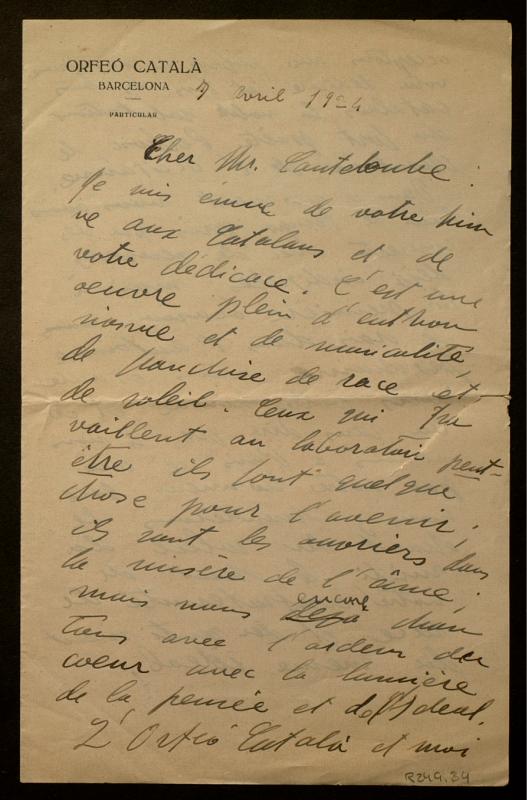 ORFEÓ CATALÀ
BARCELONA
PARTICULAR
7 Avril 1924
Cher Mr. Canteloube:
Je suis émue de votre him
ne aux Catalans et de
votre dédicace. C'est une
oeuvre plein d'enthou
siasme et de musicalité,
de franchise de race et
de soleil. Ceux qui tra
vaillent au laboratoir peut-
être ils font quelque
chose pour l'avenir;
ils sont les ouvriers dans
la misère de l'âme;
mais nous encore chan
tons avec l'ardeur du
coeur avec la lumière
de la pensée et de l'Ideal.
L'Orfeó Català et moi
R249.34